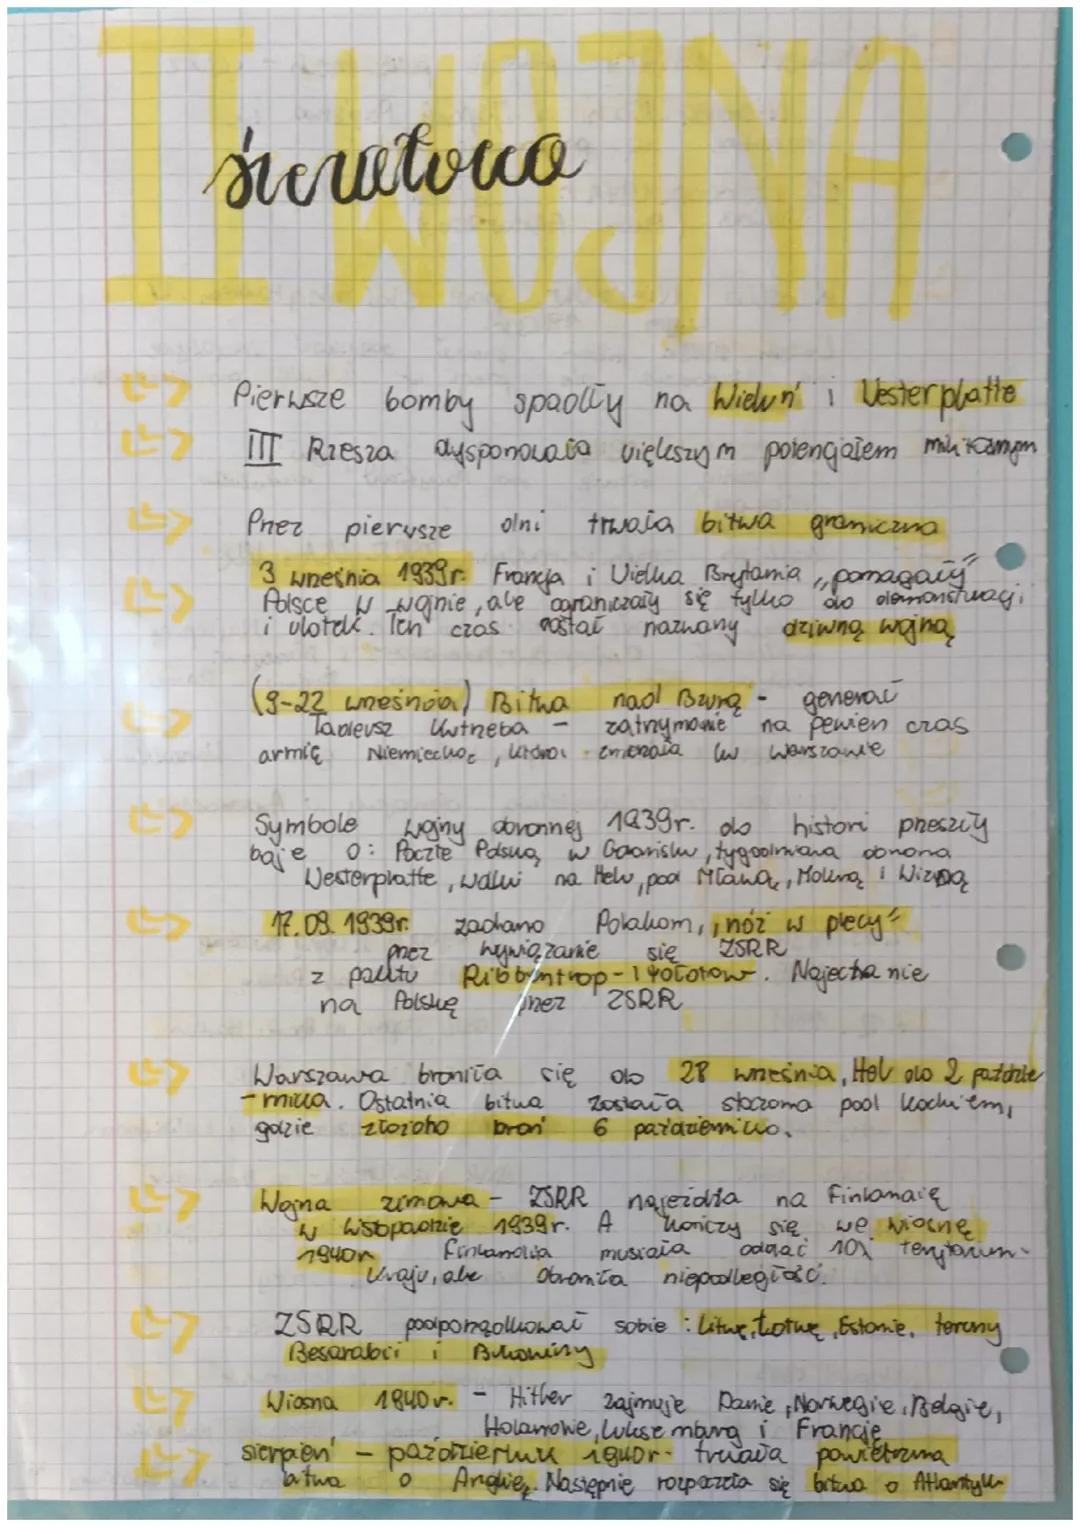 II WOJNA
światowa
Pierwsze bomby spadły na Wieluń i Westerplatte
III Rzesza dysponowała większym potencjałem militarnym
Przez pierwsze dni trwała bitwa graniczna
3 września 1939r. Francja i Wielka Brytania „pomagały"
Polsce w wojnie, ale ograniczały się tylko do demonstracji
i ulotek. Ten czas został nazwany dziwną wojną
(9-22 września) Bitwa nad Bzurą - generał
Tadeusz Kutrzeba - zatrzymanie na pewien czas
armię Niemiecką, która zmierzała ku Warszawie
Symbole wojny obronnej 1939r. do histori przeszły
boje o: Pocztę Polską w Gdańsku, tygodniowa obrona
Westerplatte, walki na Helu, pod Mławą, Mokrą i Wizną
17.09.1939r. zadano Polakom, „nóż w plecy"
przez wywiązanie się ZSRR
z paktu Ribbentrop-Mołotow. Najechanie
na Polskę przez ZSRR
Warszawa broniła się do 28 września, Hel do 2 paździe
-rnika. Ostatnia bitwa została stoczona pod Kockiem,
gdzie złożono broń 6 października.
Wojna zimowa - ZSRR najeżdża na Finlandię
w listopadzie 1939r. A kończy się we wiosnę
1940r Finlandia musiała oddać 10% terytorium
kraju, ale obroniła niepodległość.
ZSRR podporządkował sobie: Litwę, Łotwę, Estonię, tereny
Besarabii i Bukowiny
Wiosna 1940r. - Hitler zajmuje Danię, Norwegię, Belgię,
Holandię, Luksemburg i Francję
sierpień - październik 1940r- trwała powietrzna
bitwa o Anglię. Następnie rozpoczęła się bitwa o Atlantyk